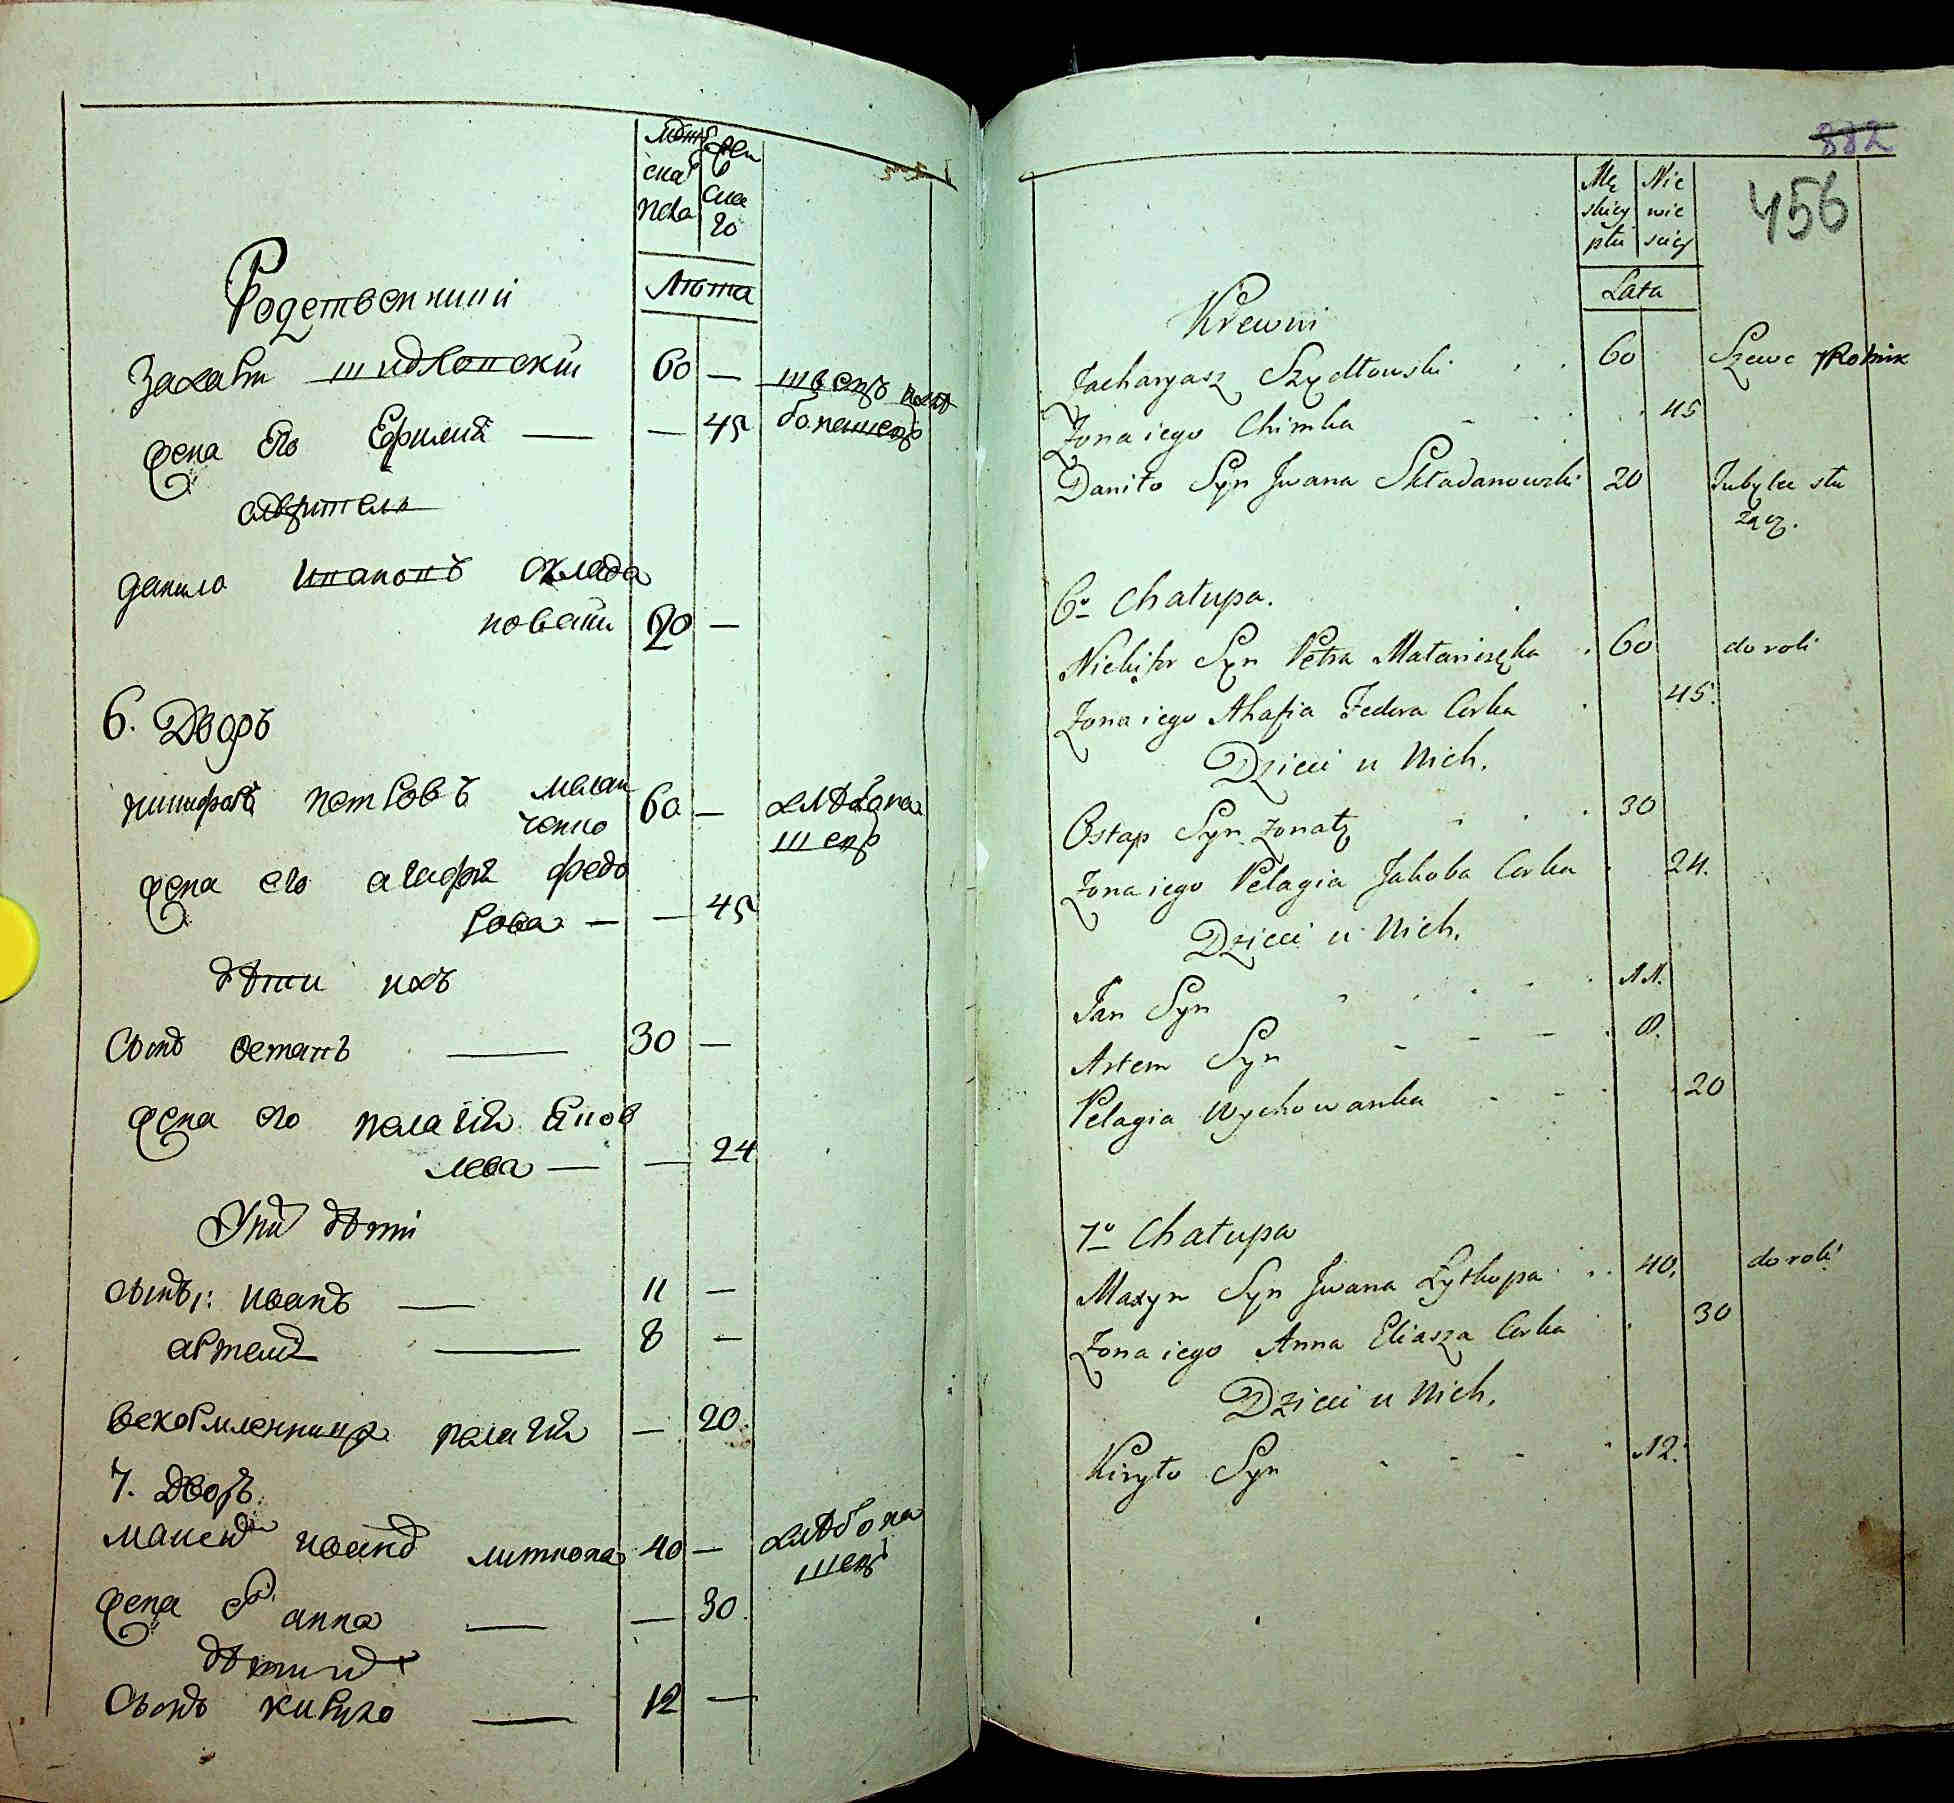 Мужескаго пола
Женскаго
Лѣта
Родственники
Захарїй Шидловскїй 60 — швецъ
жена его Ефимїя — — 45
Данило Ивановъ Склада
новскїй 20 —
6. Дворъ
Никифоръ Петровъ Малан
ченко 60 — хлѣбопа
шецъ
жена его Агафїя Федо
рова — — 45
дѣти ихъ
Сынъ Остапъ — 30 —
жена его Пелагїя Яков
лева — — 24
У нихъ дѣти
Сыны: Иванъ — 11 —
Артемъ — 8 —
Воскормленница Пелагїя — 20
7. Дворъ
Максимъ Иванъ Литкопа 40 — хлѣбопа
шецъ
жена его Анна — — 30
дѣти ихъ
Сынъ Кирило — 12 —
882
456
Mę Nie
skiey wie
płci sciey
Lata
Krewni
Zacharyasz Szydłowski 60 Szewc y Rolnik
Zona iego Chimka 45
Daniło Syn Jwana Składanowski 20 w służbie
6o Chałupa.
Nichifor Syn Petra Małaniczka 60 do roli
Zona iego Ahafia Fedora Corka 45.
Dzieci u Nich.
Ostap Syn Zonaty 30
Zona iego Pelagia Jakoba Corka 24.
Dzieci u Nich.
Jan Syn 11.
Artem Syn 8.
Pelagia Wychowanka 20
7o Chałupa
Maxym Syn Jwana Łytkopa 40. do roli
Zona iego Anna Eliasza Corka 30
Dzieci u Nich.
Kiryło Syn 12.